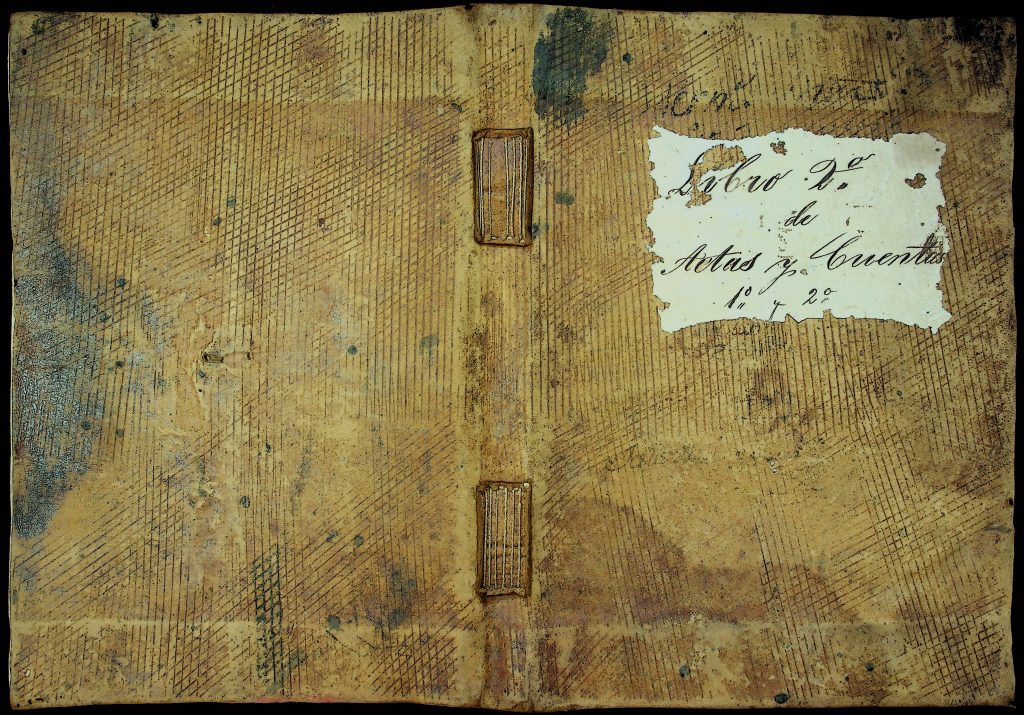 Libro 2.º
de
Actas y Cuentas
1.º y 2.º